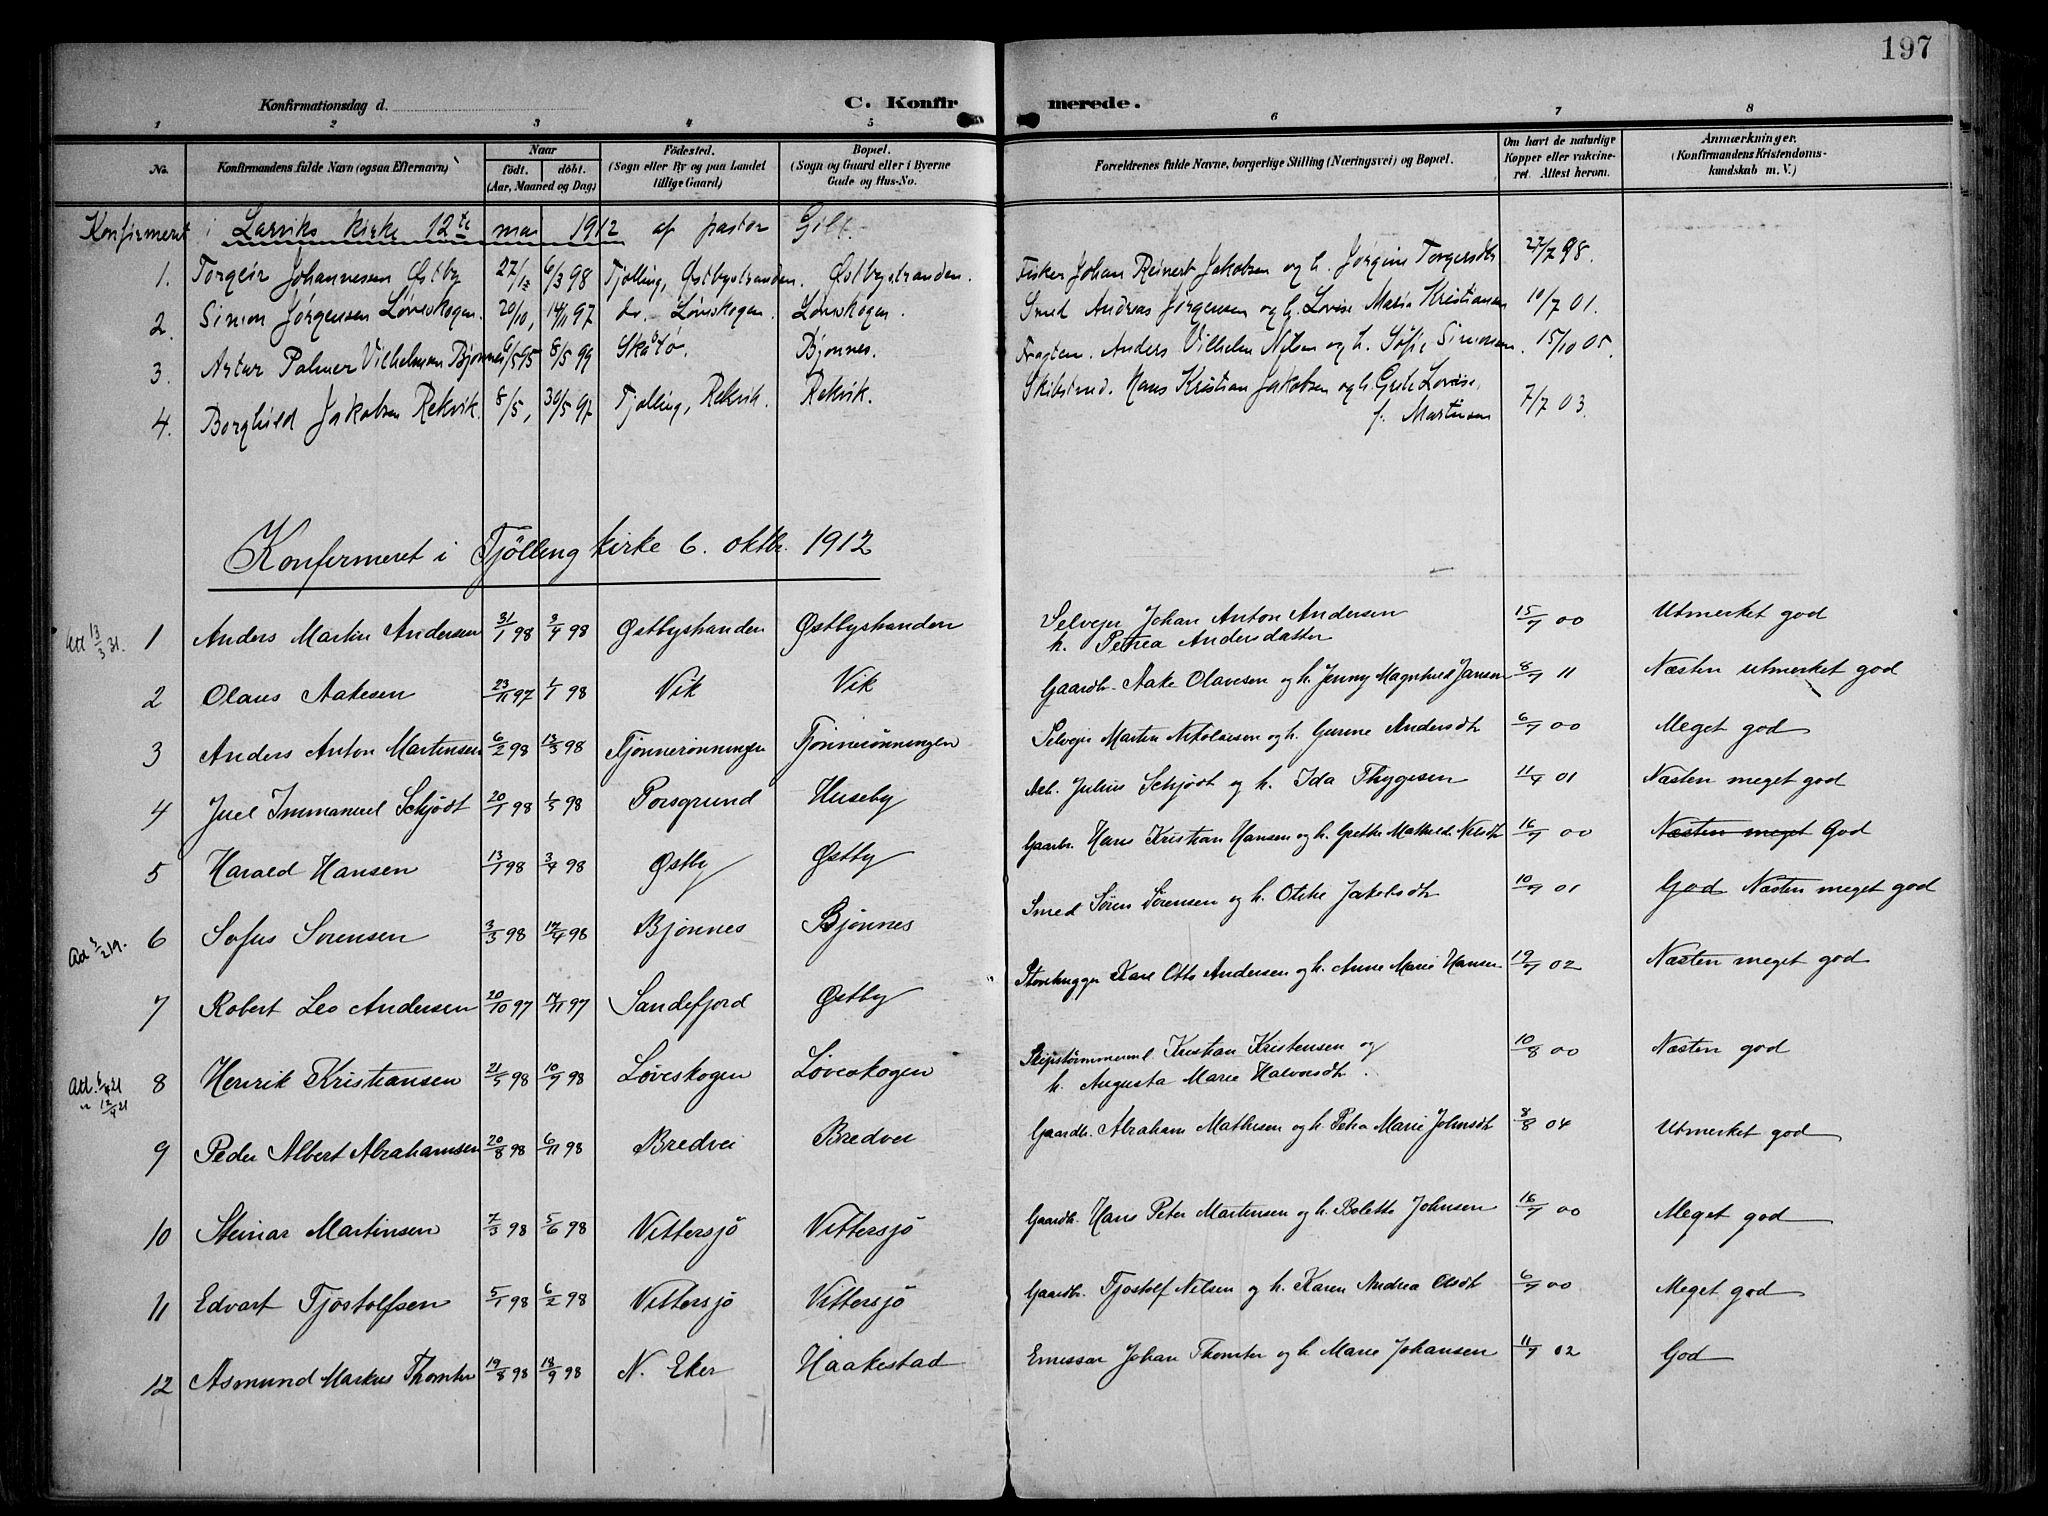 197
Konfirmationsdag d. C. Konfirmerede.
1 2 3 4 5 6 7 8
No. Konfirmandens fulde Navn (ogsaa Efternavn) Naar født. døbt. (Aar, Maaned og Dag) Fødested. (Sogn eller By og paa Landet tillige Gaard) Bopæl. (Sogn og Gaard eller i Byerne Gade og Hus-No. Forældrenes fulde Navne, borgerlige Stilling (Næringsvei) og Bopæl. Om havt de naturlige Kopper eller vakcineret. Attest herom. Anmærkninger. (Konfirmandens Kristendomskundskab m. V.)
Konfirmeret i Larviks kirke 12te mai 1912 af pastor
1. Torgeir Johannesen Østby 27/12 6/3 98 Tjølling, Østbystranden. Østbystranden. Fisker Johan Reinert Jakobsen og h. Jørgine Torgersdtr 27/7 98.
2. Simon Jørgensen Løveskogen. 20/10, 14/11 97 do. Løveskogen. Løveskogen. Smed Andreas Jørgensen og h. Lovise Maria Kristiansen 10/7 01.
3. Artur Palmer Vilhelmsen Bjønnes 8/5 99 Skaatø Bjønnes. Anders Vilhelm Nilsen og h. Sofie Simonsen. 15/10 05.
4. Borghild Jakobsen Rekvik. 8/5, 30/5 97 Tjølling, Rekvik. Rekvik. Skibstmd. Hans Kristian Jakobsen og h. Grete Lovise,
f. Martinsen 7/7 03.
Konfirmeret i Tjölling kirke 6. oktbr. 1912
att 13/3 31. 1 Anders Martin Andersen 31/1 98 3/4 98 Østbystranden Østbystranden Selvejer Johan Anton Andersen 15/9 00 Utmerket god
h. Petrea Andersdatter
2 Olaus Aakesen 23/11 97 1/1 98 Vik Vik Gaardbr. Aake Olavesen og h. Jenny Magnhild Jansen 8/9 11 Næsten utmerket god
3 Anders Anton Martinsen 6/2 98 13/3 98 Tjønnerønningen Tjønnerønningen Selvejer Martin Nikolaisen og h. Gurine Andersdtr 6/9 00 Meget god
4 Juel Immanuel Schjødt 20/1 98 1/5 98 Porsgrund Huseby Arb. Julius Schjødt og h. Ida Thygesen 11/9 01 Næsten meget god
5 Harald Hansen 13/1 98 3/4 98 Østby Østby Gaardbr. Hans Kristian Hansen og h. Grethe Mathilde Nilsdtr 16/9 00 Næsten meget God
6 Sofus Sørensen 3/3 98 17/4 98 Bjønnes Bjønnes Smed Søren Sørensen og h. Otilie Jakobsdtr 10/9 01 God Næsten meget god
7 Robert Leo Andersen 20/10 97 14/11 97 Sandefjord Østby Stenhugger Karl Otto Andersen og h. Anne Marie Hansen 19/9 02 Næsten meget god
8 Henrik Kristiansen 21/5 98 10/9 98 Løveskogen Løveskogen Skipstømmerml Kristian Kristensen og 10/8 00 Næsten god
h. Augusta Marie Halvorsdtr.
9 Peder Albert Abrahamsen 20/8 98 6/11 98 Bredvei Bredvei Gaardbr. Abraham Mathisen og h. Petra Marie Johnsdtr 8/8 04 Utmerket god
10 Steinar Martinsen 7/3 98 5/6 98 Vittersjö Vittersjö Gaardbr. Hans Peter Martensen og h. Bolette Johnsen 16/9 00 Meget god
11 Edvart Tjostolfsen 5/1 98 6/2 98 Vittersjö Vittersjö Gaardbr. Tjostolf Nilsen og h. Karen Andrea Olsdtr 6/9 00 Meget god
12 Asmund Markus Thomter 19/8 98 18/9 98 N. Eker Haakestad Emissær Johan Thomter og h. Marie Johansen 11/9 02 God